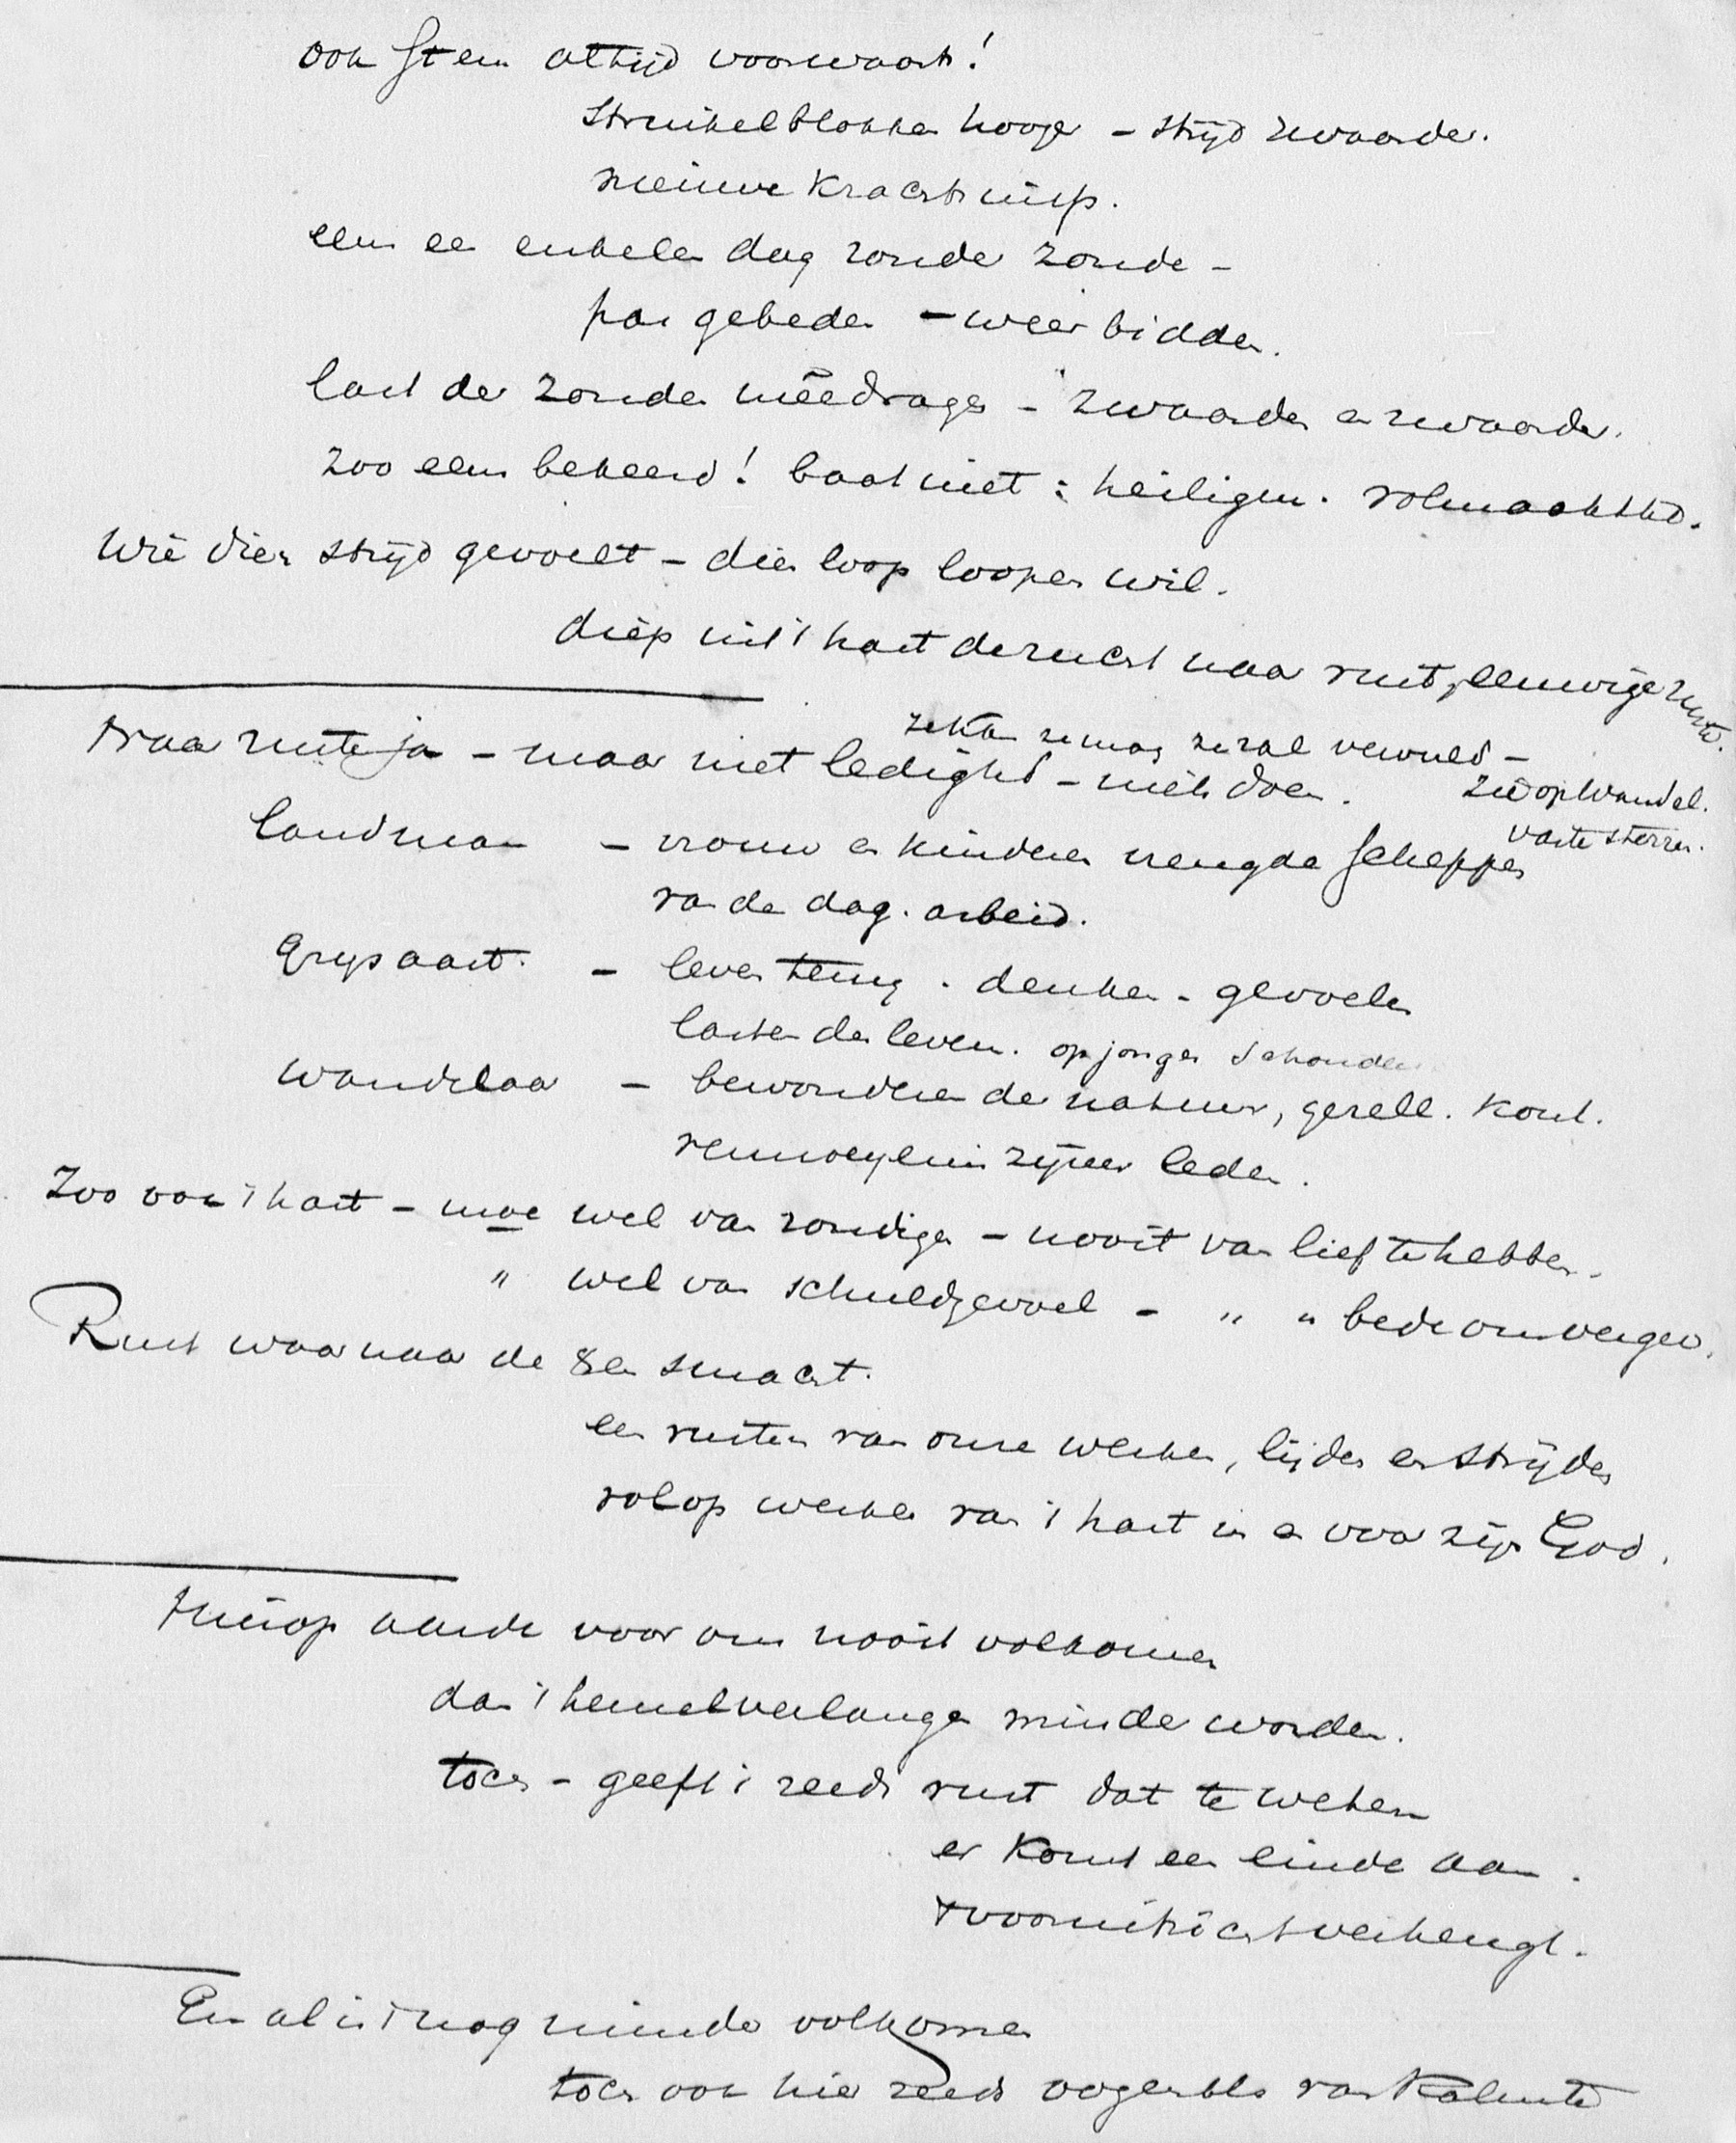 ook stem altijd voorwaarts!
Struikelblokken hooger – strijd zwaarder.
nieuwe kracht
eens een enkelen dag zonder zonde –
pas gebeden – weer bidden.
last der zonden meedragen – zwaarder en zwaarder.
zoo eens bekeerd! baat niet: heiligm. volmaakthd.
Wie dien strijd gevoelt – dien loop loopen wil.
diep uit 't hart de zucht naar rust, eeuwige rust.
Naar rust ja – maar niet ledighd – niets doen.
ze kan ze mag ze zal vervuld –
Zie op wandel.
vaste sterren.
Landman – vrouw en kinderen vreugde scheppen
van de dag. arbeid.
Grijsaart. – leven terug. denken – gevoelen
lasten des levens. op jonger schouders
Wandelaar – bewonderen de natuur, gezell. kout.
zijner leden.
Zoo ook 't hart – moe wel van zondigen – nooit van lief te hebben.
" wel van schuldgevoel – " " bede om vergev.
Rust waarnaar de smacht.
een rusten van onze werken, lijden en strijden
volop werken van 't hart in en voor zijn God.
Hier op aarde voor ons nooit volkomen
dan 't hemelverlangen minder worden.
toch – geeft 't reeds rust dat te weten
er komt een einde aan.
't vooruitzicht verheugt.
En al is 't nog minder volkomen
toch ook hier reeds oogenbl. van kalmte